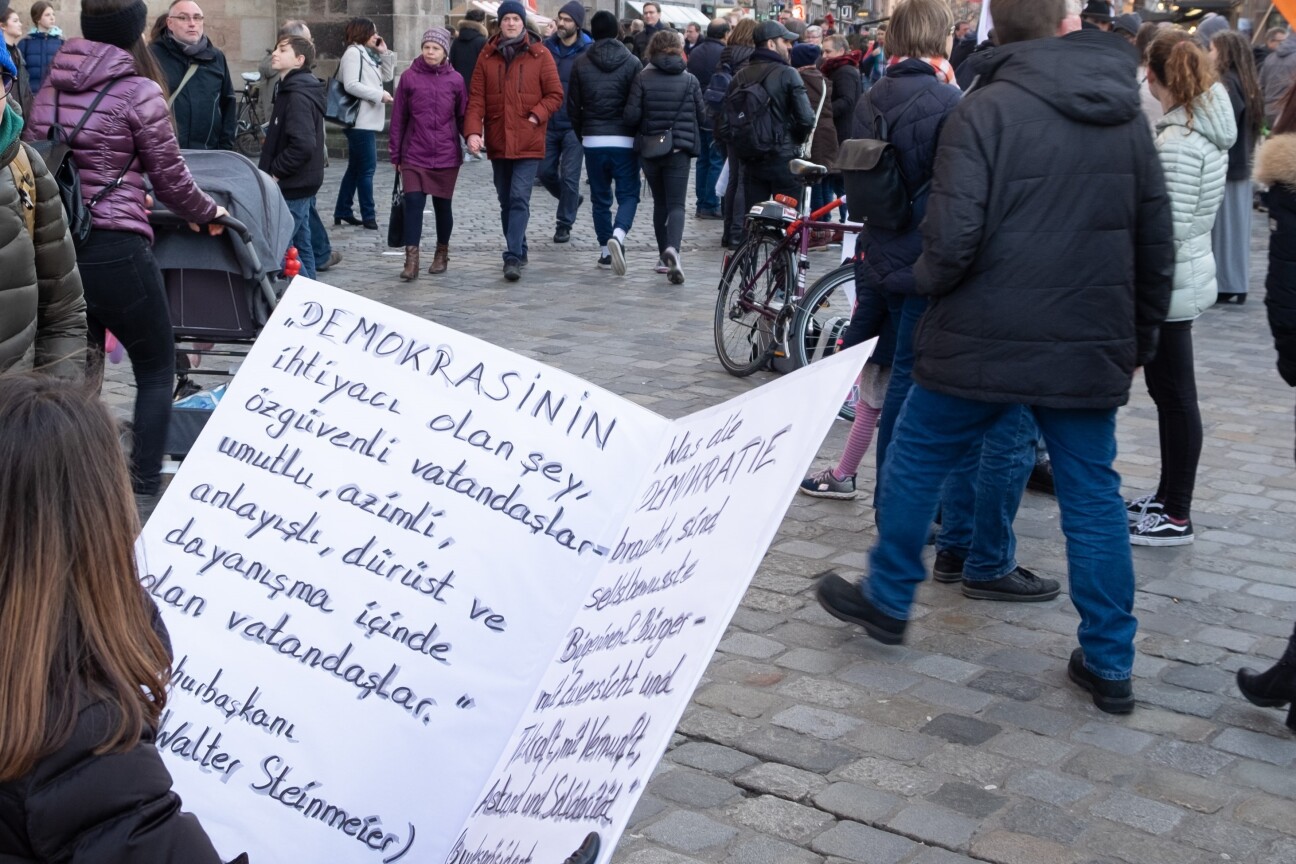 „DEMOKRASİNİN
ihtiyacı olan şey,
özgüvenli vatandaşlar-
umutlu, azimli,
anlayışlı, dürüst ve
dayanışma içinde
olan vatandaşlar."
hurbaşkanı
Walter Steinmeier)
„Was die
DEMOKRATIE
braucht, sind
selbstbewusste
Bürger-
mit Zuversicht und
Tatkraft, mit Vernunft,
Anstand und Solidarität."
(Bundespräsident